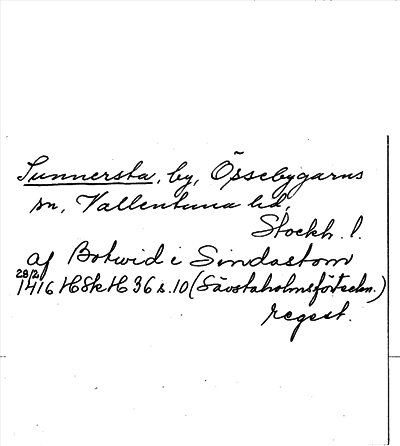 Sunnersta, by, Össebygarns
sn, Vallentuna hd,
Stockh. l.
af Botwid i Sindastom
28/2 1416 HSkH 36 s. 10 (Sävstaholmsförteckn.)
regest.